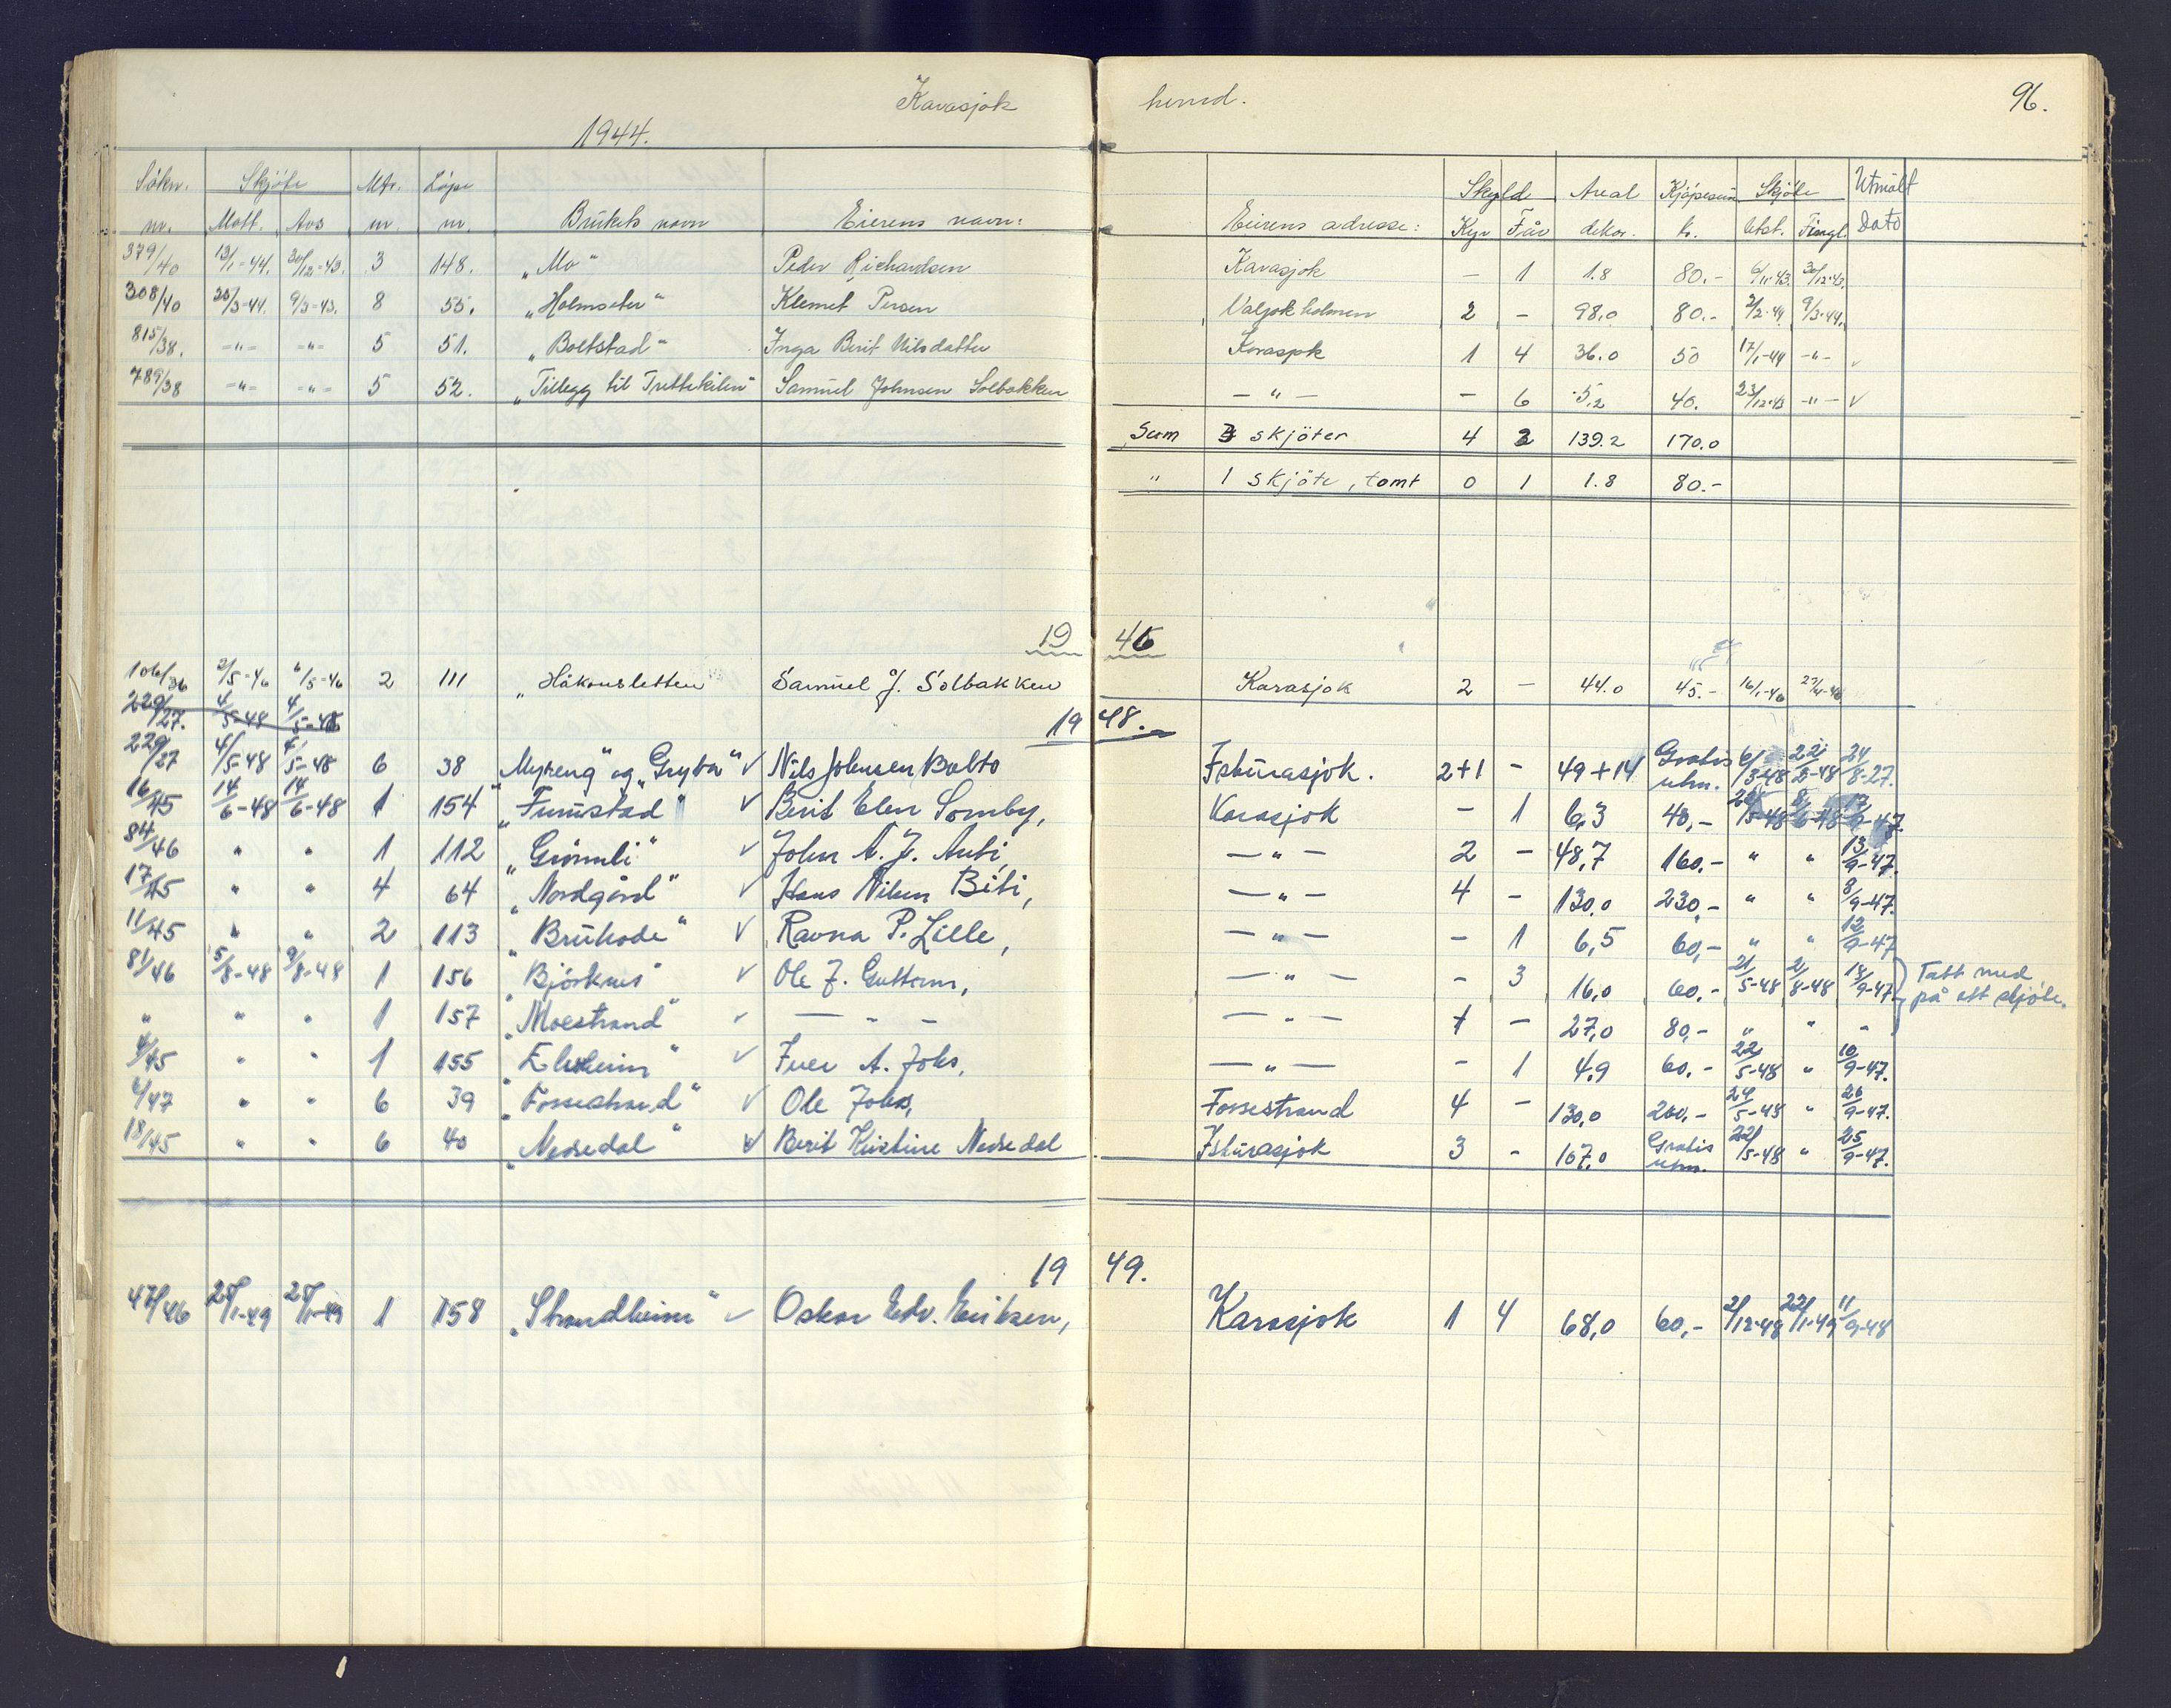 Karasjok herred. 96.
1944.
Søkn. Skjøte Mtr. Løpe Skyld Areal Kjøpesum Skjøte Utmålt
nr. Mott. Avs nr. nr. Brukets navn Eierens navn: Eierens adresse: Kyr Får dekar. kr. Utst. Tingl. Dato
379/40 13/1-44. 30/12-43. 3 148. „Mo“ Peder Richardsen Karasjok — 1 1.8 80.- 6/11-43. 30/12-43.
308/40 25/3-44. 9/3-43. 8 55. „Holmseter“ Klemet Persen Valjok holmen 2 - 98,0 80.- 2/2-44. 9/3-44.
815/38. -„- -„- 5 51. „Boltstad“ Inga Berit Nilsdatter Karasjok 1 4 36.0 50 17/1-44 -„- v
789/38 -„- -„- 5 52. „Tillegg til Trettekilen“ Samuel Johnsen Solbakken — „ — - 6 5,2 40. 23/12-43 -„- v
Sum 3 skjöter 4 2 139.2 170.0
„ 1 skjöte, tomt 0 1 1.8 80.-
1946
106/36 2/5-46 6/5-46 2 111 „Håkonsletten“ Samuel J. Solbakken Karasjok 2 — 44.0 45.- 16/1-46 27/4-46
229/27. 4/5-48 4/5-48
1948.
229/27 4/5-48 4/5-48 6 38 „Myreng“ og „Gryta“ v Nils Johnsen Balto Isturasjok. 2+1 - 49+14 Gratis utm. 6/3-48 22/3-48 24/8-27.
16/45 14/6-48 14/6-48 1 154 „Furustad“ v Berit Elen Somby, Karasjok - 1 6,3 40,- 22/5-48 2/6-48 12/9-47.
84/46 „ „ 1 112 „Grönnli“ v John A. J. Anti — „ — 2 - 48,7 160,- „ „ 13/9-47.
17/45 „ „ 4 64 „Nordgård“ v Hans Nilsen Biti, — „ — 4 - 130,0 230,- „ „ 8/9-47.
11/45 „ „ 2 113 „Bruhode“ v Ravna P. Lille, — „ — - 1 6,5 60,- „ „ 12/9-47
81/46 5/8-48 9/8-48 1 156 „Björknes“ v Ole J. Guttorm, — „ — - 3 16,0 60,- 21/5-48 2/8-48 18/9-47 Tatt med
„ „ „ 1 157 „Moestrand“ v — „ — — „ — 1 - 27,0 80,- „ „ „ på ett skjöte.
4/45 „ „ 1 155 „Elvheim“ v Iver A. Joks, — „ — - 1 4,9 60,- 22/5-48 „ 10/9-47.
6/47 „ „ 6 39 „Fossestrand“ v Ole Joks, Fossestrand 4 - 130,0 200,- 24/5-48 „ 26/9-47.
18/45 „ „ 6 40 „Nedredal“ v Berit Kristine Nedredal Isturasjok 3 - 167,0 Gratis utm. 22/5-48 „ 25/9-47.
1949.
47/46 25/1-49 25/1-49 1 158 „Strandheim“ v Oskar Edv. Eriksen, Karasjok 1 4 68,0 60,- 2/12-48 22/1-49 11/9-48